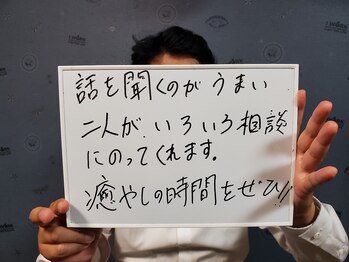 話を聞くのがうまい
二人が、いろいろ相談
にのってくれます。
癒やしの時間をぜひ!!